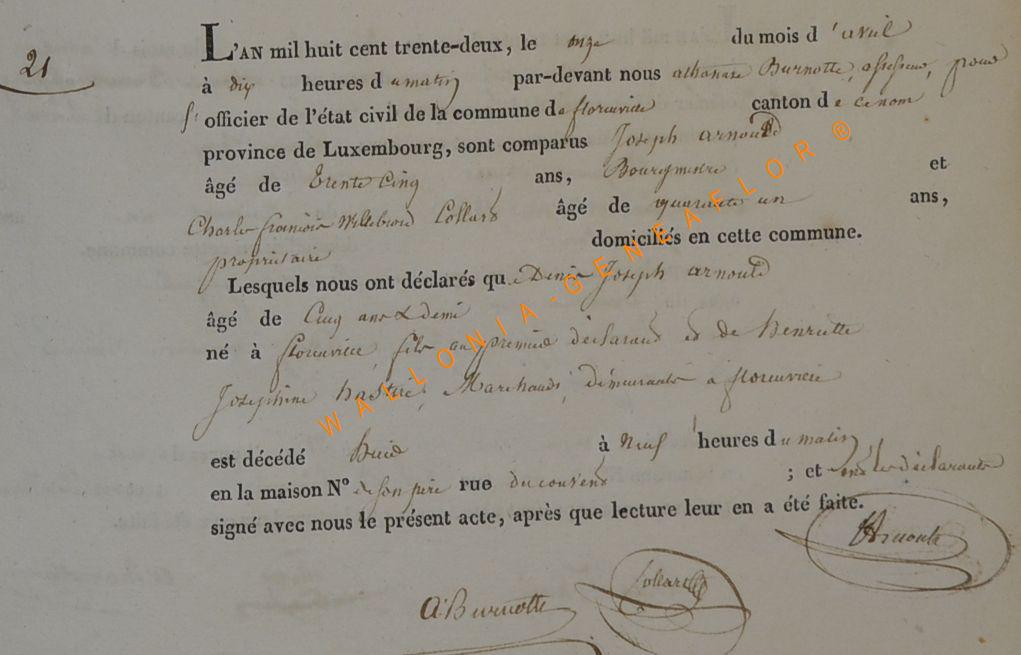 21
L'AN mil huit cent trente-deux, le onze du mois d'avril
à dix heures du matin par-devant nous athanase Burnotte, assesseur, pour
l'officier de l'état civil de la commune de florenville canton de ce nom
province de Luxembourg, sont comparus Joseph arnould
âgé de trente Cinq ans, Bourgmestre et
Charles françois Willebrord Collard âgé de quarante un ans,
propriétaire domiciliés en cette commune.
Lesquels nous ont déclarés que Denis Joseph arnould
âgé de Cinq ans & demi
né à florenville, fils au premier déclarant et de henriette
Josephine Marchands, demeurants a florenville
est décédé à Neuf heures du matin
en la maison N° de son père rue du couvent ; et les déclarants
signé avec nous le présent acte, après que lecture leur en a été faite.
Arnould
Collard
A. Burnotte
WALLONIA-GENEAFLOR ®